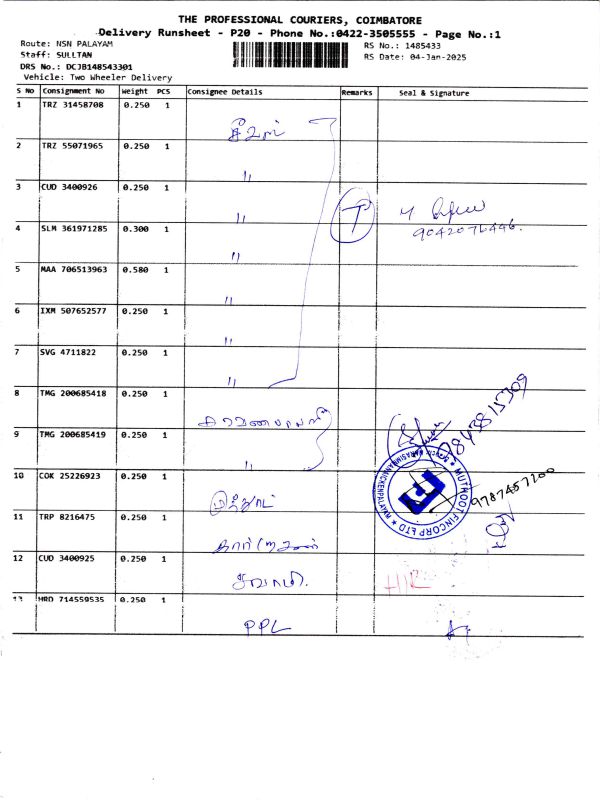 THE PROFESSIONAL COURIERS, COIMBATORE
Delivery Runsheet - P20 - Phone No.:0422-3505555 - Page No.:1
Route: NSN PALAYAM
RS No.: 1485433
Staff: SULLTAN
RS Date: 04-Jan-2025
DRS No.: DCJB148543301
Vehicle: Two Wheeler Delivery
S No Consignment No Weight PCS Consignee Details Remarks Seal & Signature
1 TRZ 31458708 0.250 1
2 TRZ 55071965 0.250 1
"
3 CUD 3400926 0.250 1
" T
9042076446.
4 SLM 361971285 0.300 1
"
5 MAA 706513963 0.580 1
"
6 IXM 507652577 0.250 1
"
7 SVG 4711822 0.250 1
"
8 TMG 200685418 0.250 1
9843815309
9 TMG 200685419 0.250 1
"
MUTHOOT FINCORP LTD
10 COK 25226923 0.250 1
9787457200
11 TRP 8216475 0.250 1
12 CUD 3400925 0.250 1
13 HRD 714559535 0.250 1
PPL